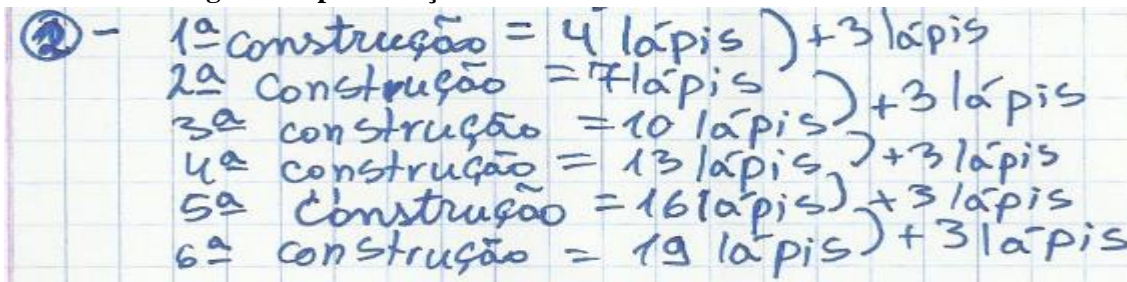 2 - 1ª construção = 4 lápis ) +3 lápis
2ª construção = 7 lápis
) +3 lápis
3ª construção = 10 lápis
4ª construção = 13 lápis ) +3 lápis
5ª construção = 16 lápis ) +3 lápis
6ª construção = 19 lápis ) +3 lápis